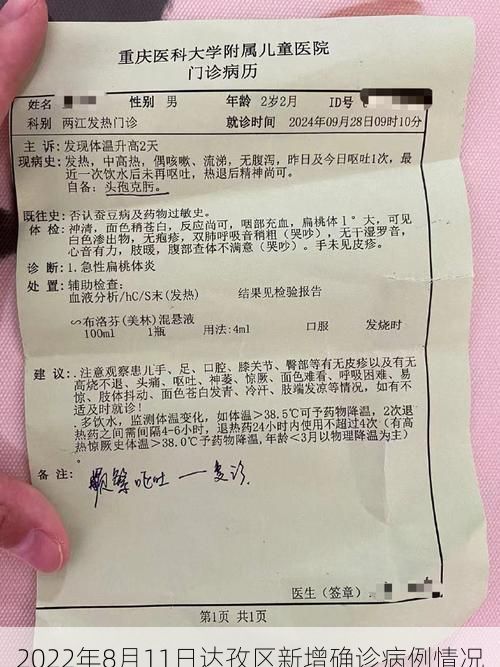 重庆医科大学附属儿童医院
门诊病历
姓名 性别 男 年龄 2岁2月 ID号
科别 两江发热门诊 就诊时间 2024年09月28日09时10分
主 诉: 发现体温升高2天
现病史: 发热，中高热，偶咳嗽、流涕，无腹泻，昨日及今日呕吐1次，最
近一次饮水后未再呕吐，热退后精神尚可。
自备：头孢克肟。
既往史: 否认蚕豆病及药物过敏史。
体 检: 神清，面色稍苍白，反应尚可，咽部充血，扁桃体Ⅰ°大，可见
白色渗出物，无疱疹，双肺呼吸音稍粗（哭吵），无干湿罗音，
心音有力，肢暖，腹部查体不满意（哭吵）。手未见皮疹。
诊 断: 1.急性扁桃体炎
处 置: 辅助检查:
血液分析/hC/S末(发热) 结果见检验报告
∽布洛芬(美林)混悬液
100ml 1瓶 用法: 4ml 口服 发烧时
建 议: .注意观察患儿手、足、口腔、膝关节、臀部等有无皮疹以及有无
高烧不退、头痛、呕吐、神萎、惊厥、面色难看、呼吸困难、易
惊、肢体抖动、面色苍白发青、冷汗、肢端发凉等情况，如有不
适及时就诊！
.多饮水，监测体温变化，如体温＞38.5℃可予药物降温，2次退
热药之间需间隔4-6小时，退热药24小时内使用不超过4次（有高
热惊厥史体温＞38.0℃予药物降温,年龄＜3月以物理降温为主）
。
备 注: 频繁呕吐 — 复诊
医生（签章）：
第1页 共1页
2022年8月11日达孜区新增确诊病例情况